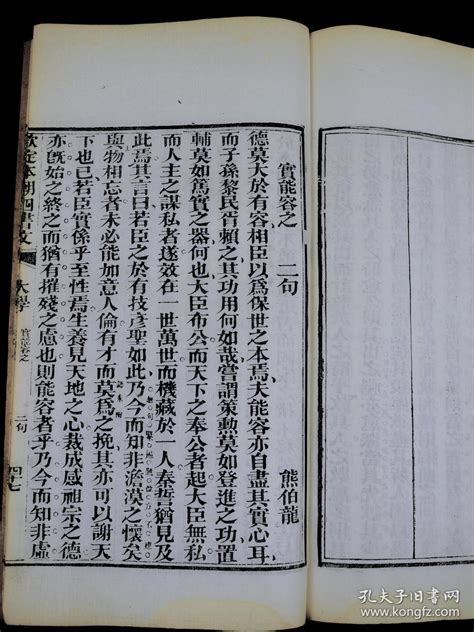 實能容之 二句
熊伯龍
德莫大於有容相臣以為保世之本焉夫能容亦自盡其實心耳
而子孫黎民胥賴之其功用何如哉嘗謂策勳莫如登進之功置
輔莫如篤實之器何也大臣布公而天下之奉公者起大臣無私
而人主之謀私者遂效在一世萬世而機藏於一人秦誓猶見及
此焉其言曰若臣之於有技彥聖如此乃今而知非澹漠之懷矣
與物相忘者未必能如意人倫有才而莫為之挽其亦可以謝天
下也已若臣實係乎至性焉生養見天地之心裁成感祖宗之德
亦既始之終之而猶有摧殘之慮也則能容者乎乃今而知非虛
欽定本朝四書文
大學
實能容之
二句
四十七
孔夫子旧书网
www.kongfz.com